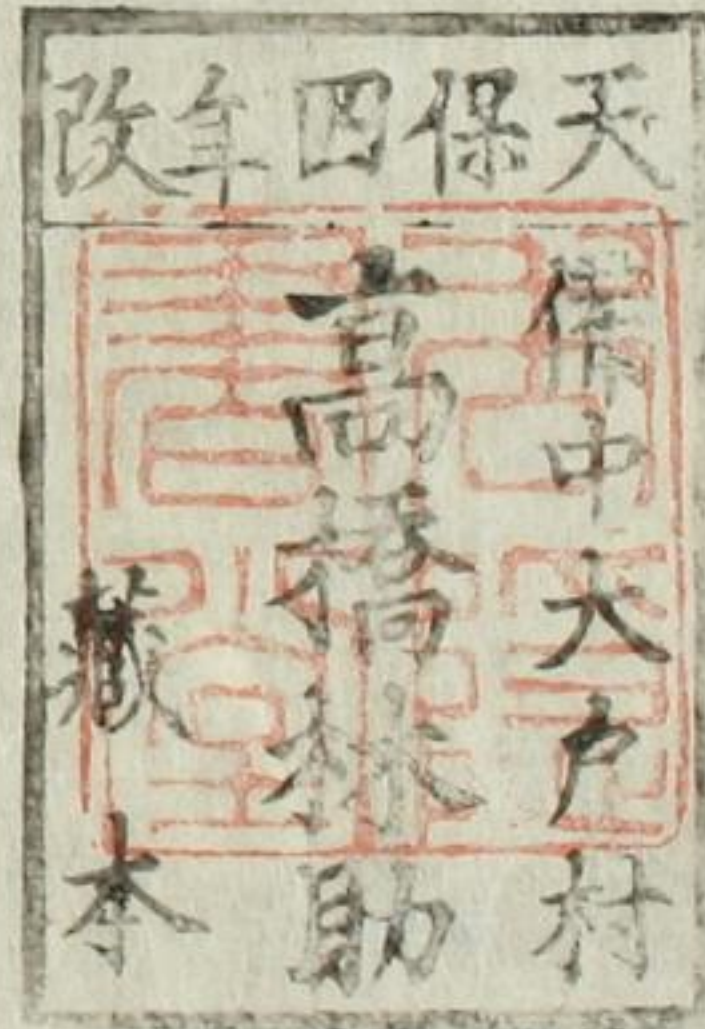 天保四年改
作中大戸村
高橋林助
藏本